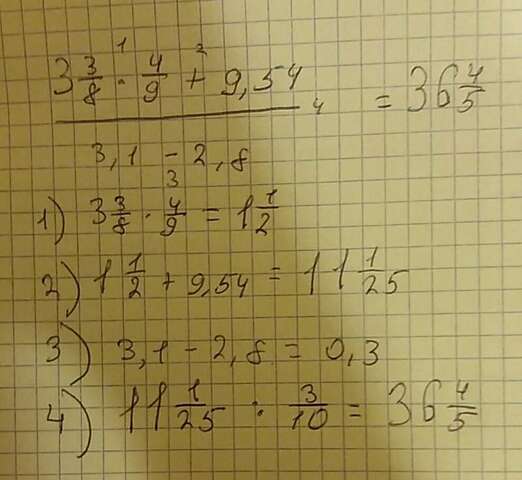 3 3/8 · 4/9 + 9,54 = 36 4/5
1 2 4
3,1 - 2,8
3
1) 3 3/8 · 4/9 = 1 1/2
2) 1 1/2 + 9,54 = 11 1/25
3) 3,1 - 2,8 = 0,3
4) 11 1/25 : 3/10 = 36 4/5